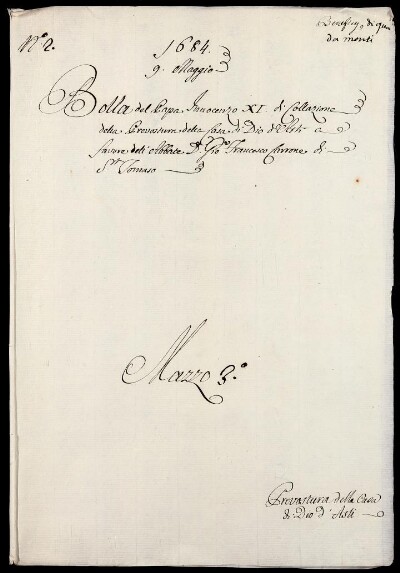 N.º 2.
Beneficj di qua
da monti
1684.
9. Maggio
Bolla del Papa Innocenzo XI di Collazione
della Prevostura della Casa di Dio d'Asti a
favore dell'Abbate D. Gio. Francesco Carrone di
S. Tomaso
Mazzo 3.º
Prevostura della Casa
di Dio d'Asti